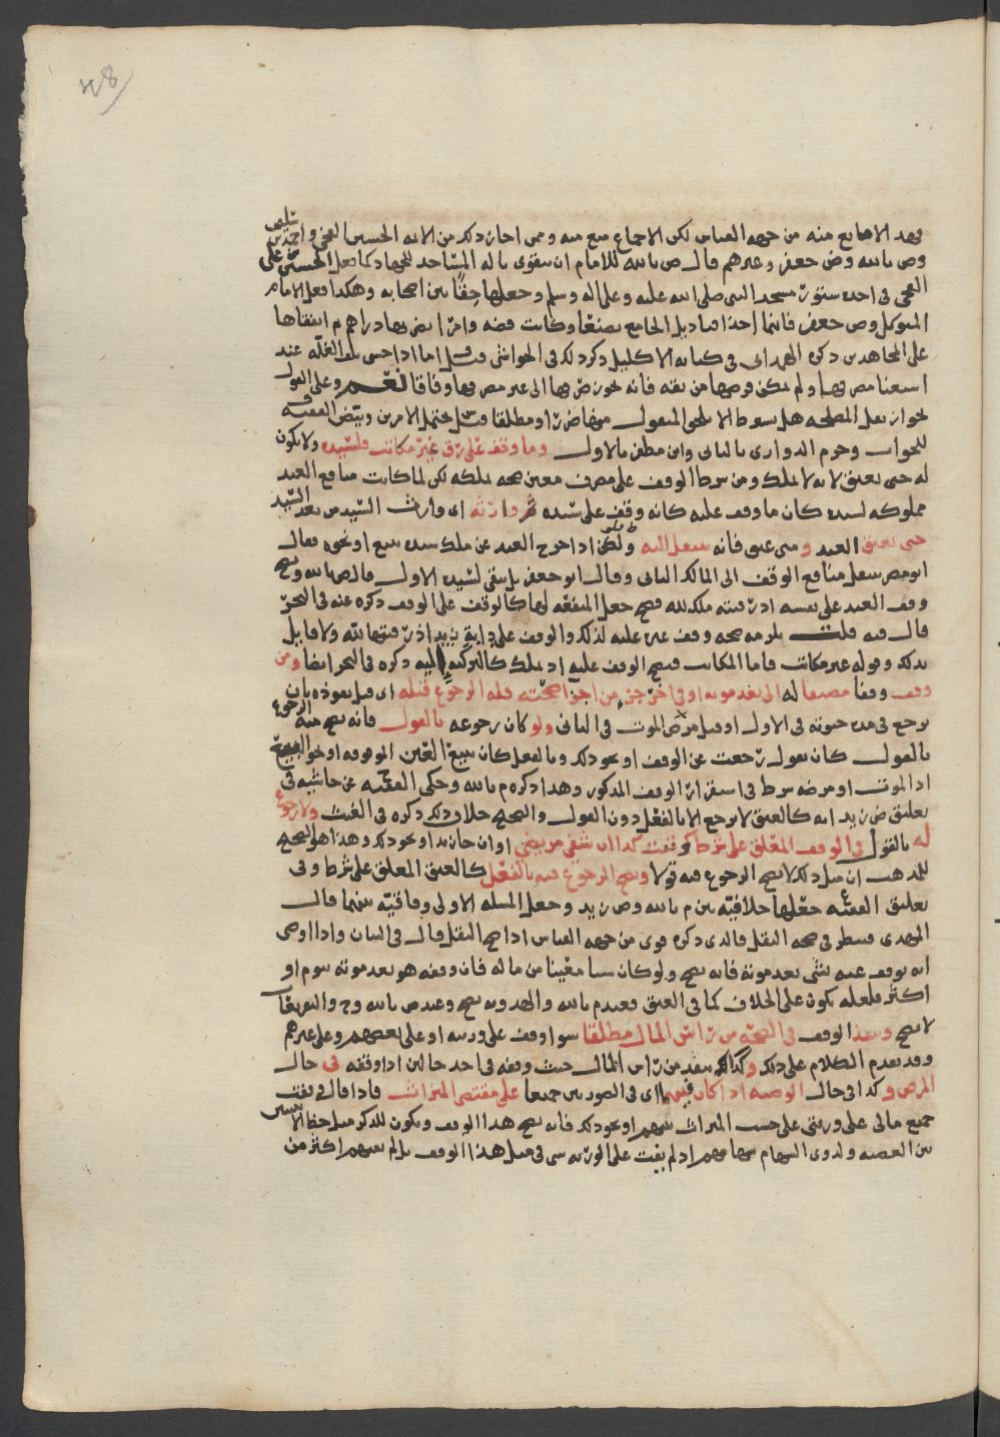 فهذا لا مانع منه من جهه القياس لكن الاجماع منع منه وممن اجاز ذلك من الائمه الحسين
وص بالله وض جعفر وغيرهم قال ص بالله للامام ان يتقوى باله المساجد للجهاد كما فعل الحسين بن علي
الفخي في اخذه ستور مسجد النبي صلى الله عليه وعلى اله وسلم وجعلها خفافا بين اصحابه وهكذا فعل الامام
المتوكل وض جعفر فانهما اخذا قناديل الجامع بصنعا وكانت فضه وامرا بضربها دراهم وانفقاها
على المجاهدين ذكره الهمداني في كتابه الاكليل وذكر ذلك في الحواشي قيل اما اذا خشي تلف الغله عند
اسغنا مصرفها ولم يمكن قرضها من ثقه فانه يجوز صرفها الى غير مصرفها وفاقا نعم وعلى القول
بجواز نقل المصلحه هل يشترط الا يلحق المنقول منها ضرر او مطلقا قيل يحتمل الامرين وبيض الفقيه ف
للجواب وجزم الدواري بالثاني وابن مظفر بالاول وما وقف على رق غير مكاتب فلسيده ولا يكون
له حتى يعتق لانه لا يملك ومن شرط الوقف على مصرف معين صحه تملكه لكن لما كانت منافع العبد
مملوكه لسيده كان ما وقف عليه كانه وقف على سيده ثم وارثه اي وارث السيد من بعد السيد
حتى يعتق العبد ومتى عتق فانه ينتقل اليه ولكن اذا خرج العبد عن ملك سيده ببيع او نحوه فقال
ابو مضر ينتقل منافع الوقف الى المالك الثاني وقال ابو جعفر بل يبقى لسيده الاول قال ص بالله ويصح
وقف العبد على نفسه اذ رقبته ملك لله فصح جعل المنفعه لها كالوقف على الوقف ذكره عنه في البحر
قال فيه قلت يلزمه صحه وقف غيره عليه لذلك والوقف على دابة زيد اذ رقبتها لله ولا قايل
بذلك وقوله غير مكاتب فاما المكاتب فيصح الوقف عليه اذ يملك كالتركه اليه ذكره في البحر ايضا ومن
وقف وقفا مضيفا له الى بعد موته او في اخر جزء من اجزا صحته فله الرجوع قبله اي قبل نفوذه بان
يرجع في مده حيوته في الاول او قبل مرض الموت في الثاني ولو كان رجوعه بالقول فانه يصح منه الرجوع
بالقول كان يقول رجعت عن الوقف او نحو ذلك وبالفعل كان يبيع العين الموقوفه او نحو البيع
اذ الموت او مرضه شرط في استقرار الوقف المذكور وهذا ذكره م بالله وحكى الفقيه ع عن حاشيه في
تعليق ض زيد انه كالعتق لا يرجع الا بالفعل دون القول والصحيح خلاف ذلك ذكره في الغيث ولا رجوع
له بالقول في الوقف المعلق على شرط كوقفت كذا ان شفي مريضي او ان جا زيد او نحو ذلك وهذا هو الصحيح
للمذهب ان مثل ذلك لا يصح الرجوع فيه قولا ويصح الرجوع فيه بالفعل كالعتق المعلق على شرط وفي
تعليق الفقيه ع جعلها خلافيه بين م بالله وض زيد وجعل المسله الاولى وفاقيه بينهما قال
المهدي فينظر في صحه النقل فالذي ذكره قوي من جهه القياس اذا صح النقل قال في البيان واذا اوصى
انه يوقف عنه شي بعد موته فانه يصح ولو كان شيا معينا من ماله فان وقفه هو بعد موته بيوم او
اكثر فلعله يكون على الخلاف كما في العتق فعند م بالله والهدويه يصح وعند ص بالله وح والفريقان
لا يصح وينفذ الوقف في الصحه من راس المال مطلقا سوا وقف على ورثته او على بعضهم وعلى غيرهم
وقد تقدم الكلام على ذلك وكذلك ينفذ من راس المال حيث وقفه في احد حالين اذا وقفه في حال
المرض وكذا في حال الوصيه اذا كان فيهما اي في الصورتين جميعا على مقتضى الميراث فاذا قال وقفت
جميع مالي على ورثتي على حسب الميراث بينهم او نحو ذلك فانه يصح هذا الوقف ويكون للذكر مثل حظ الانثيين
بين العصبه ولذوي السهام سهامهم اذ لم يفت على الورثه شي في مثل هذا الوقف بل لم يصبهم اكثر من